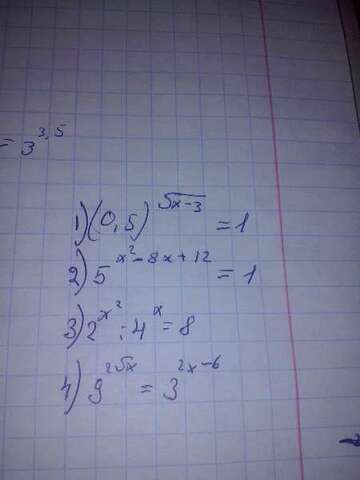 = 3^3,5
1) (0,5)^√(x-3) = 1
2) 5^(x²-8x+12) = 1
3) 2^x² : 4^x = 8
4) 9^(2√x) = 3^(2x-6)